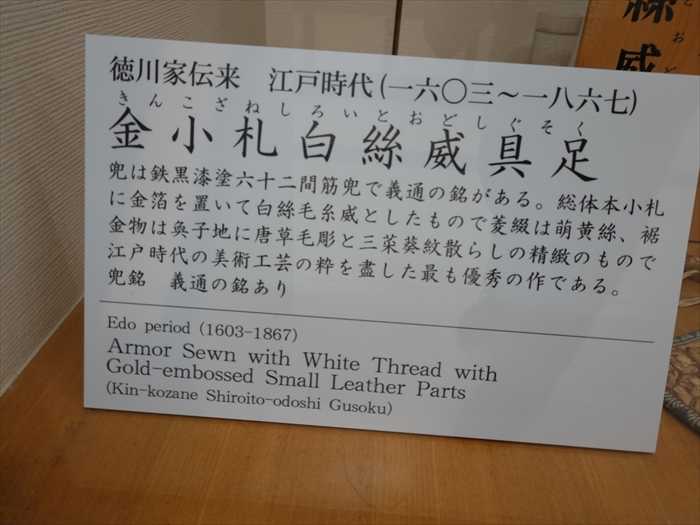 徳川家伝来 江戸時代(一六〇三〜一八六七)
きんこざねしろいとおどしぐそく
金小札白絲威具足
兜は鉄黒漆塗六十二間筋兜で義通の銘がある。総体本小札
に金箔を置いて白絲毛糸威としたもので菱綴は萌黄絲、裾
金物は奐子地に唐草毛彫と三葉葵紋散らしの精緻のもので
江戸時代の美術工芸の粋を盡した最も優秀の作である。
兜銘 義通の銘あり
Edo period (1603-1867)
Armor Sewn with White Thread with
Gold-embossed Small Leather Parts
(Kin-kozane Shiroito-odoshi Gusoku)
絲威